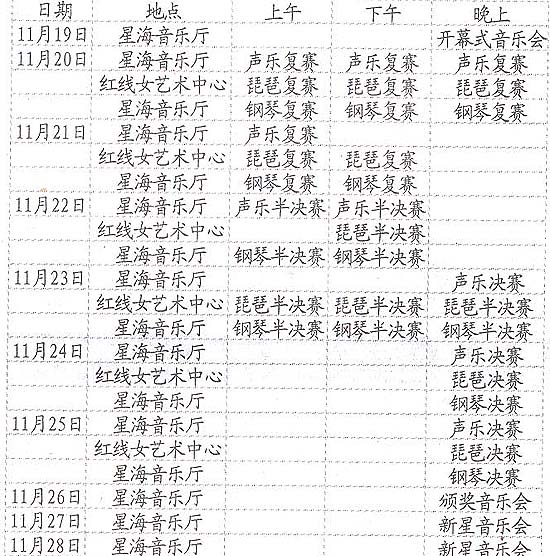 日期 地点 上午 下午 晚上
11月19日 星海音乐厅 开幕式音乐会
11月20日 星海音乐厅 声乐复赛 声乐复赛 声乐复赛
红线女艺术中心 琵琶复赛 琵琶复赛 琵琶复赛
星海音乐厅 钢琴复赛 钢琴复赛 钢琴复赛
11月21日 星海音乐厅 声乐复赛
红线女艺术中心 琵琶复赛 琵琶复赛
星海音乐厅 钢琴复赛 钢琴复赛
11月22日 星海音乐厅 声乐半决赛 声乐半决赛
红线女艺术中心 琵琶半决赛
星海音乐厅 钢琴半决赛 钢琴半决赛
11月23日 星海音乐厅 声乐决赛
红线女艺术中心 琵琶半决赛 琵琶半决赛 琵琶半决赛
星海音乐厅 钢琴半决赛 钢琴半决赛 钢琴半决赛
11月24日 星海音乐厅 声乐决赛
红线女艺术中心 琵琶决赛
星海音乐厅 钢琴决赛
11月25日 星海音乐厅 声乐决赛
红线女艺术中心 琵琶决赛
星海音乐厅 钢琴决赛
11月26日 星海音乐厅 颁奖音乐会
11月27日 星海音乐厅 新星音乐会
11月28日 星海音乐厅 新星音乐会